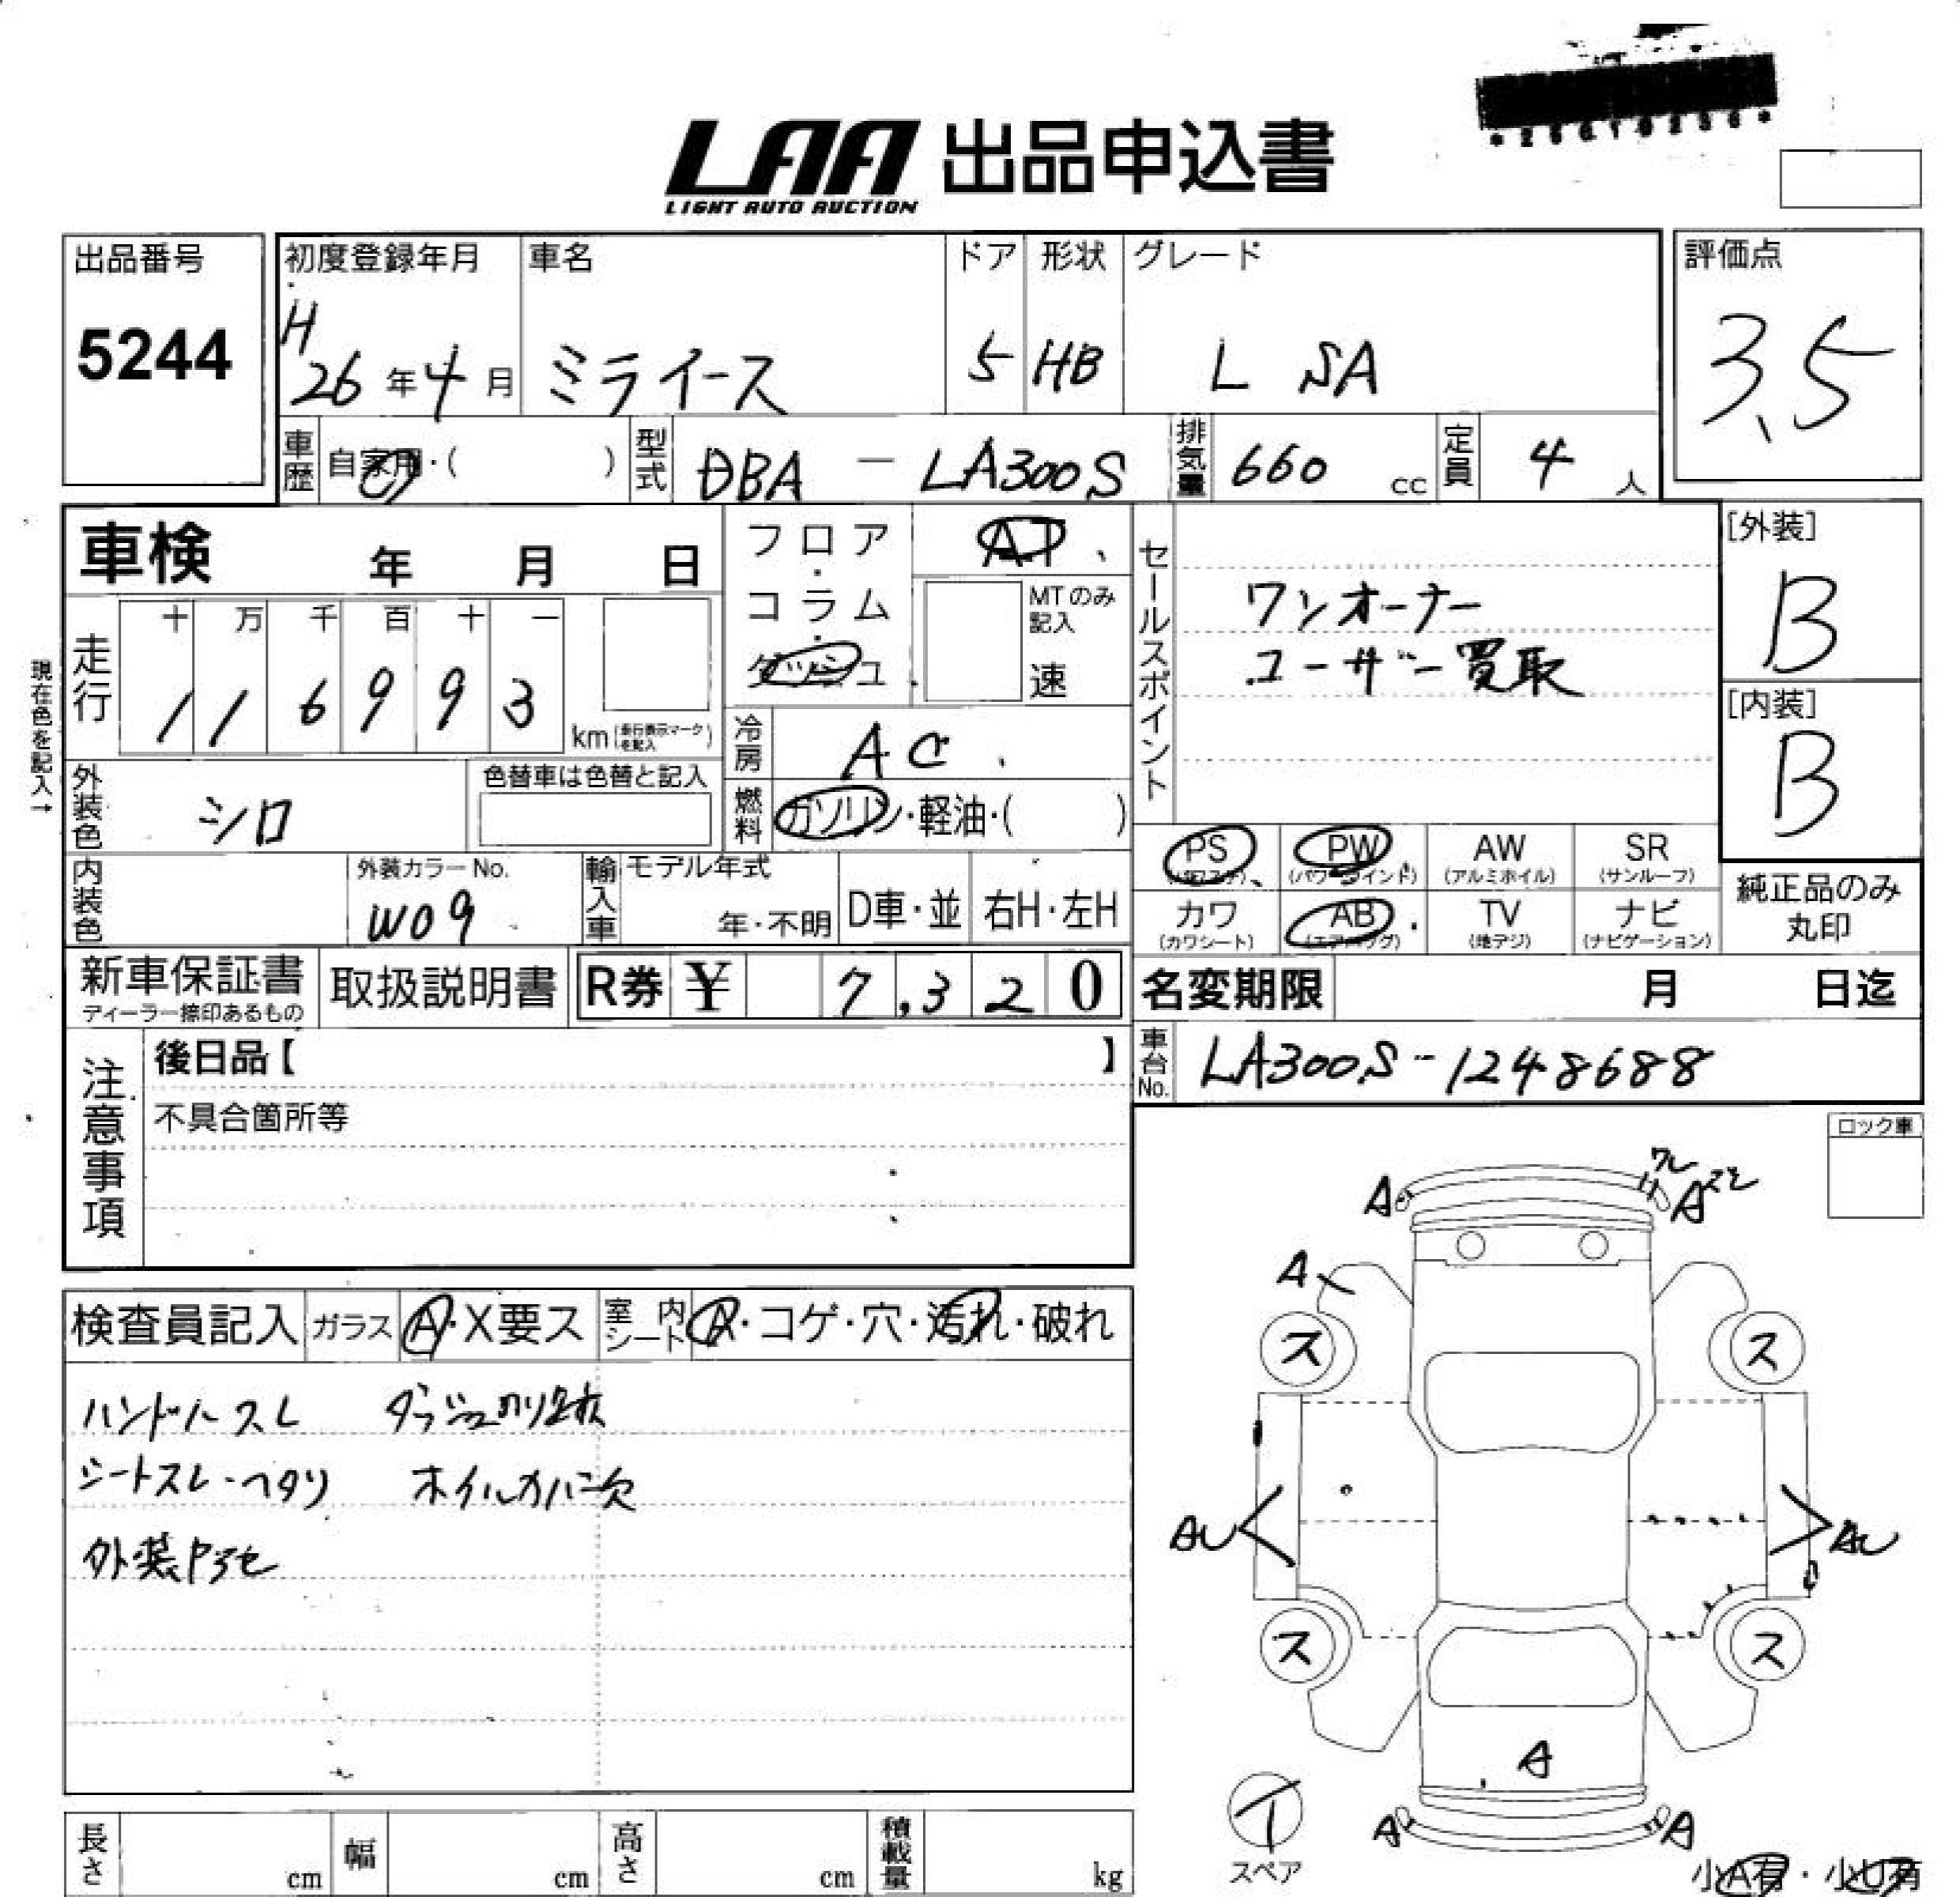 LAA 出品申込書
LIGHT AUTO AUCTION
出品番号
5244
初度登録年月
H
26年4月
車名
ミライース
ドア
5
形状
HB
グレード
L SA
評価点
3.5
車歴
自家用・( )
型式
DBA - LA300S
排気量
660 cc
定員
4 人
車検 年 月 日
フロア・コラム・ダッシュ
AT
MTのみ記入
速
セールスポイント
ワンオーナー
ユーザー買取
[外装]
B
[内装]
B
現在色を記入→
走行
十 万 千 百 十 一
1 1 6 9 9 3
km(走行表示マークを記入)
冷房
AC
外装色
シロ
色替車は色替と記入
燃料
ガソリン・軽油・( )
PS (パワステ)
PW (パワーウインド)
AW (アルミホイル)
SR (サンルーフ)
カワ (カワシート)
AB (エアバッグ)
TV (地デジ)
ナビ (ナビゲーション)
純正品のみ丸印
内装色
外装カラーNo.
W09
輸入車
モデル年式
年・不明
D車・並
右H・左H
新車保証書
ディーラー捺印あるもの
取扱説明書
R券 ¥ 7,320
名変期限 月 日迄
注意事項
後日品【 】
不具合箇所等
車台No.
LA300S-1248688
ロック車
検査員記入
ガラス
A・X要ス
室内シート
A・コゲ・穴・汚れ・破れ
ハンドルスレ
シートスレ・ヘタリ
ホイルカバー欠
ワレ
A
A
A
ス
ス
AU
AU
ス
ス
A
A
A
スペア
小A有・小U有
長さ cm
幅 cm
高さ cm
積載量 kg